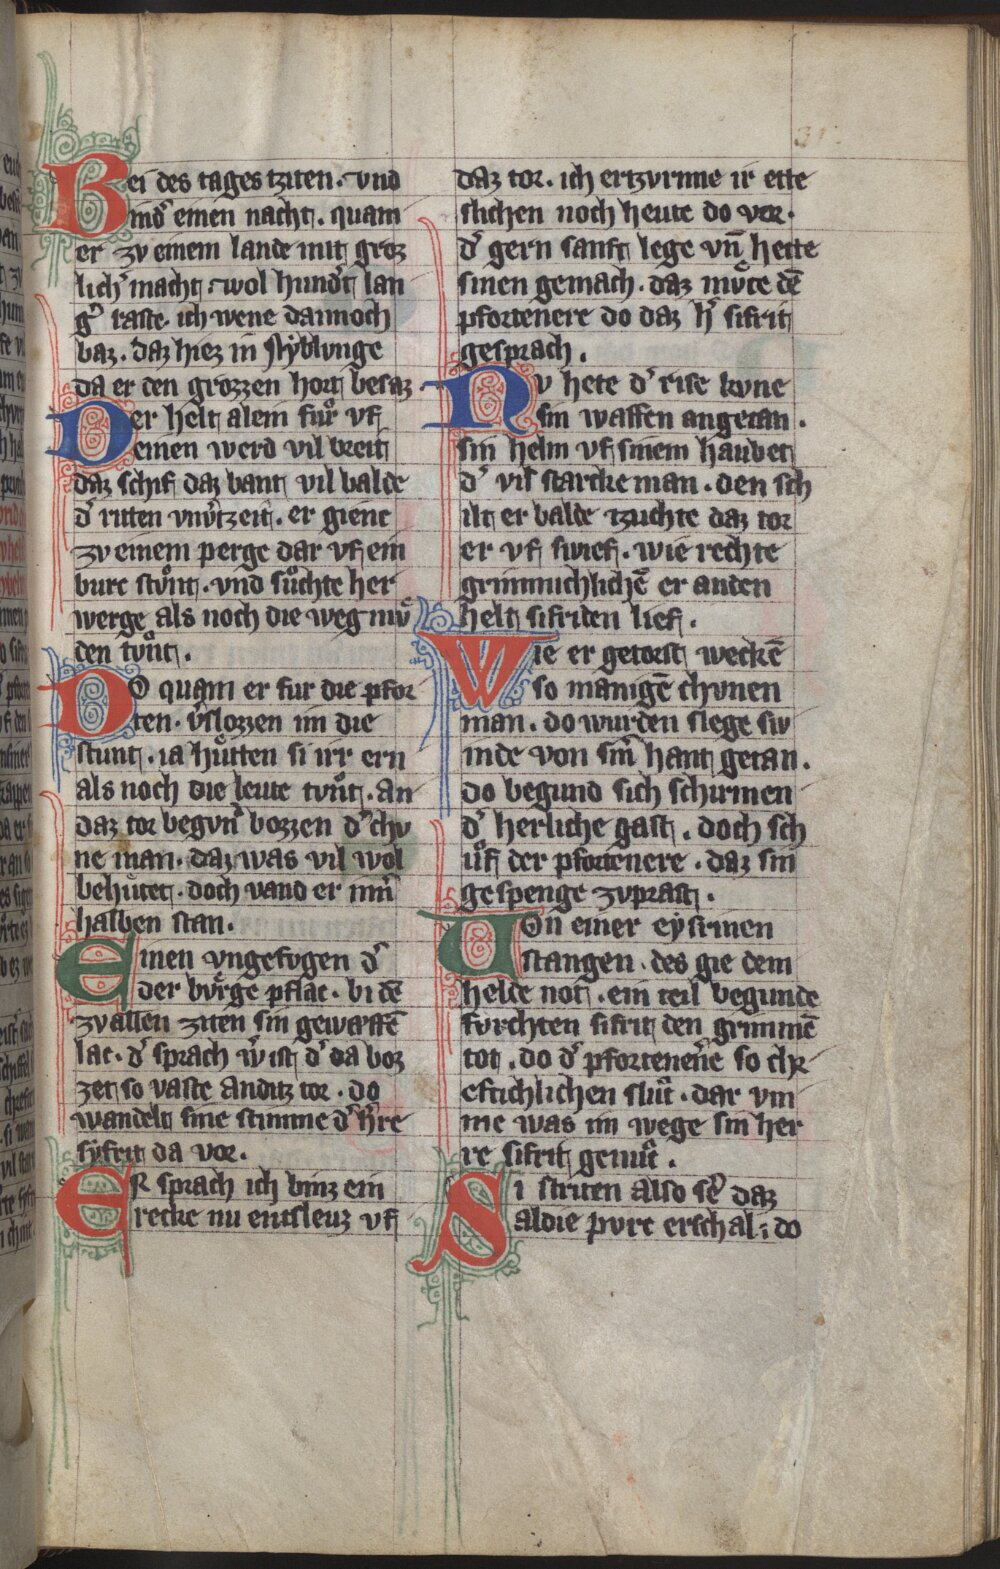 31
Bei des tages tziten. vnd
ind᾽ einen nacht. quam
er zv einem lande mit groz
lich᾽ macht. wol hund᾽t lan
g᾽ raste. ich wene dannoch
baz. daz hiez in Nyblvnge
da er den grozzen hort besaz
Der helt alein fuͦr vf
einen werd vil breit
daz schif daz bant vil balde
d᾽ ritten vnv᾽tzeit. er gienc
zv einem perge dar vf ein
burc stuͦnt. vnd suͦchte her
werge als noch die weg muͦ
den tuͦnt.
Do quam er fur die pfor
ten. v᾽slozzen im die
stunt. ia huͦtten si irr ern
als noch die leute tunͦt. an
daz tor begvn᾽ bozzen d᾽ chv
ne man. daz was vil wol
behutet. doch vand er inn᾽
halben stan.
Einen vngefvgen d᾽
der buͦrge pflac. bi dē
zv allen ziten sin gewaffē
lac. d᾽ sprach w᾽ ist d᾽ da boz
zet so vaste an ditz tor. do
wandelt sine stimme d᾽ h᾽re
syfrit da vor.
Er sprach ich binz ein
recke nu entsleuz vf
daz tor. ich ertzvrnne ir ette
slichen noch heute do vor.
d᾽ gern sanft lege vn̄ hette
sinen gemach. daz muͦte dē
pfortenere do daz h᾽ sifrit
gesprach.
Nv hete d᾽ rise kvne
sin waffen angetan.
sin helm vf sinem haubet
d᾽ vil starcke man. den sch
ilt er balde tzuchte daz tor
er vf swief. wie rechte
grimmichlichē er anden
helt sifriden lief.
Wie er getorst weckē
so manigē chvnen
man. do wurden slege sw
inde von sin᾽ hant getan.
do begund sich schirmen
d᾽ herliche gast. doch sch
uͦf der pfortenere. daz sin
gespenge zvprast.
Von einer eysrinen
stangen. des gie dem
helde not. ein teil begunde
fvrchten sifrit den grimmē
tot. do d᾽ pfortener᾽e so chr
eftichlichen sluͦc. dar vm
me was im wege sin her
re sifrit genuͦc.
Si striten also se᾽ daz
aldie pvrc erschal; do